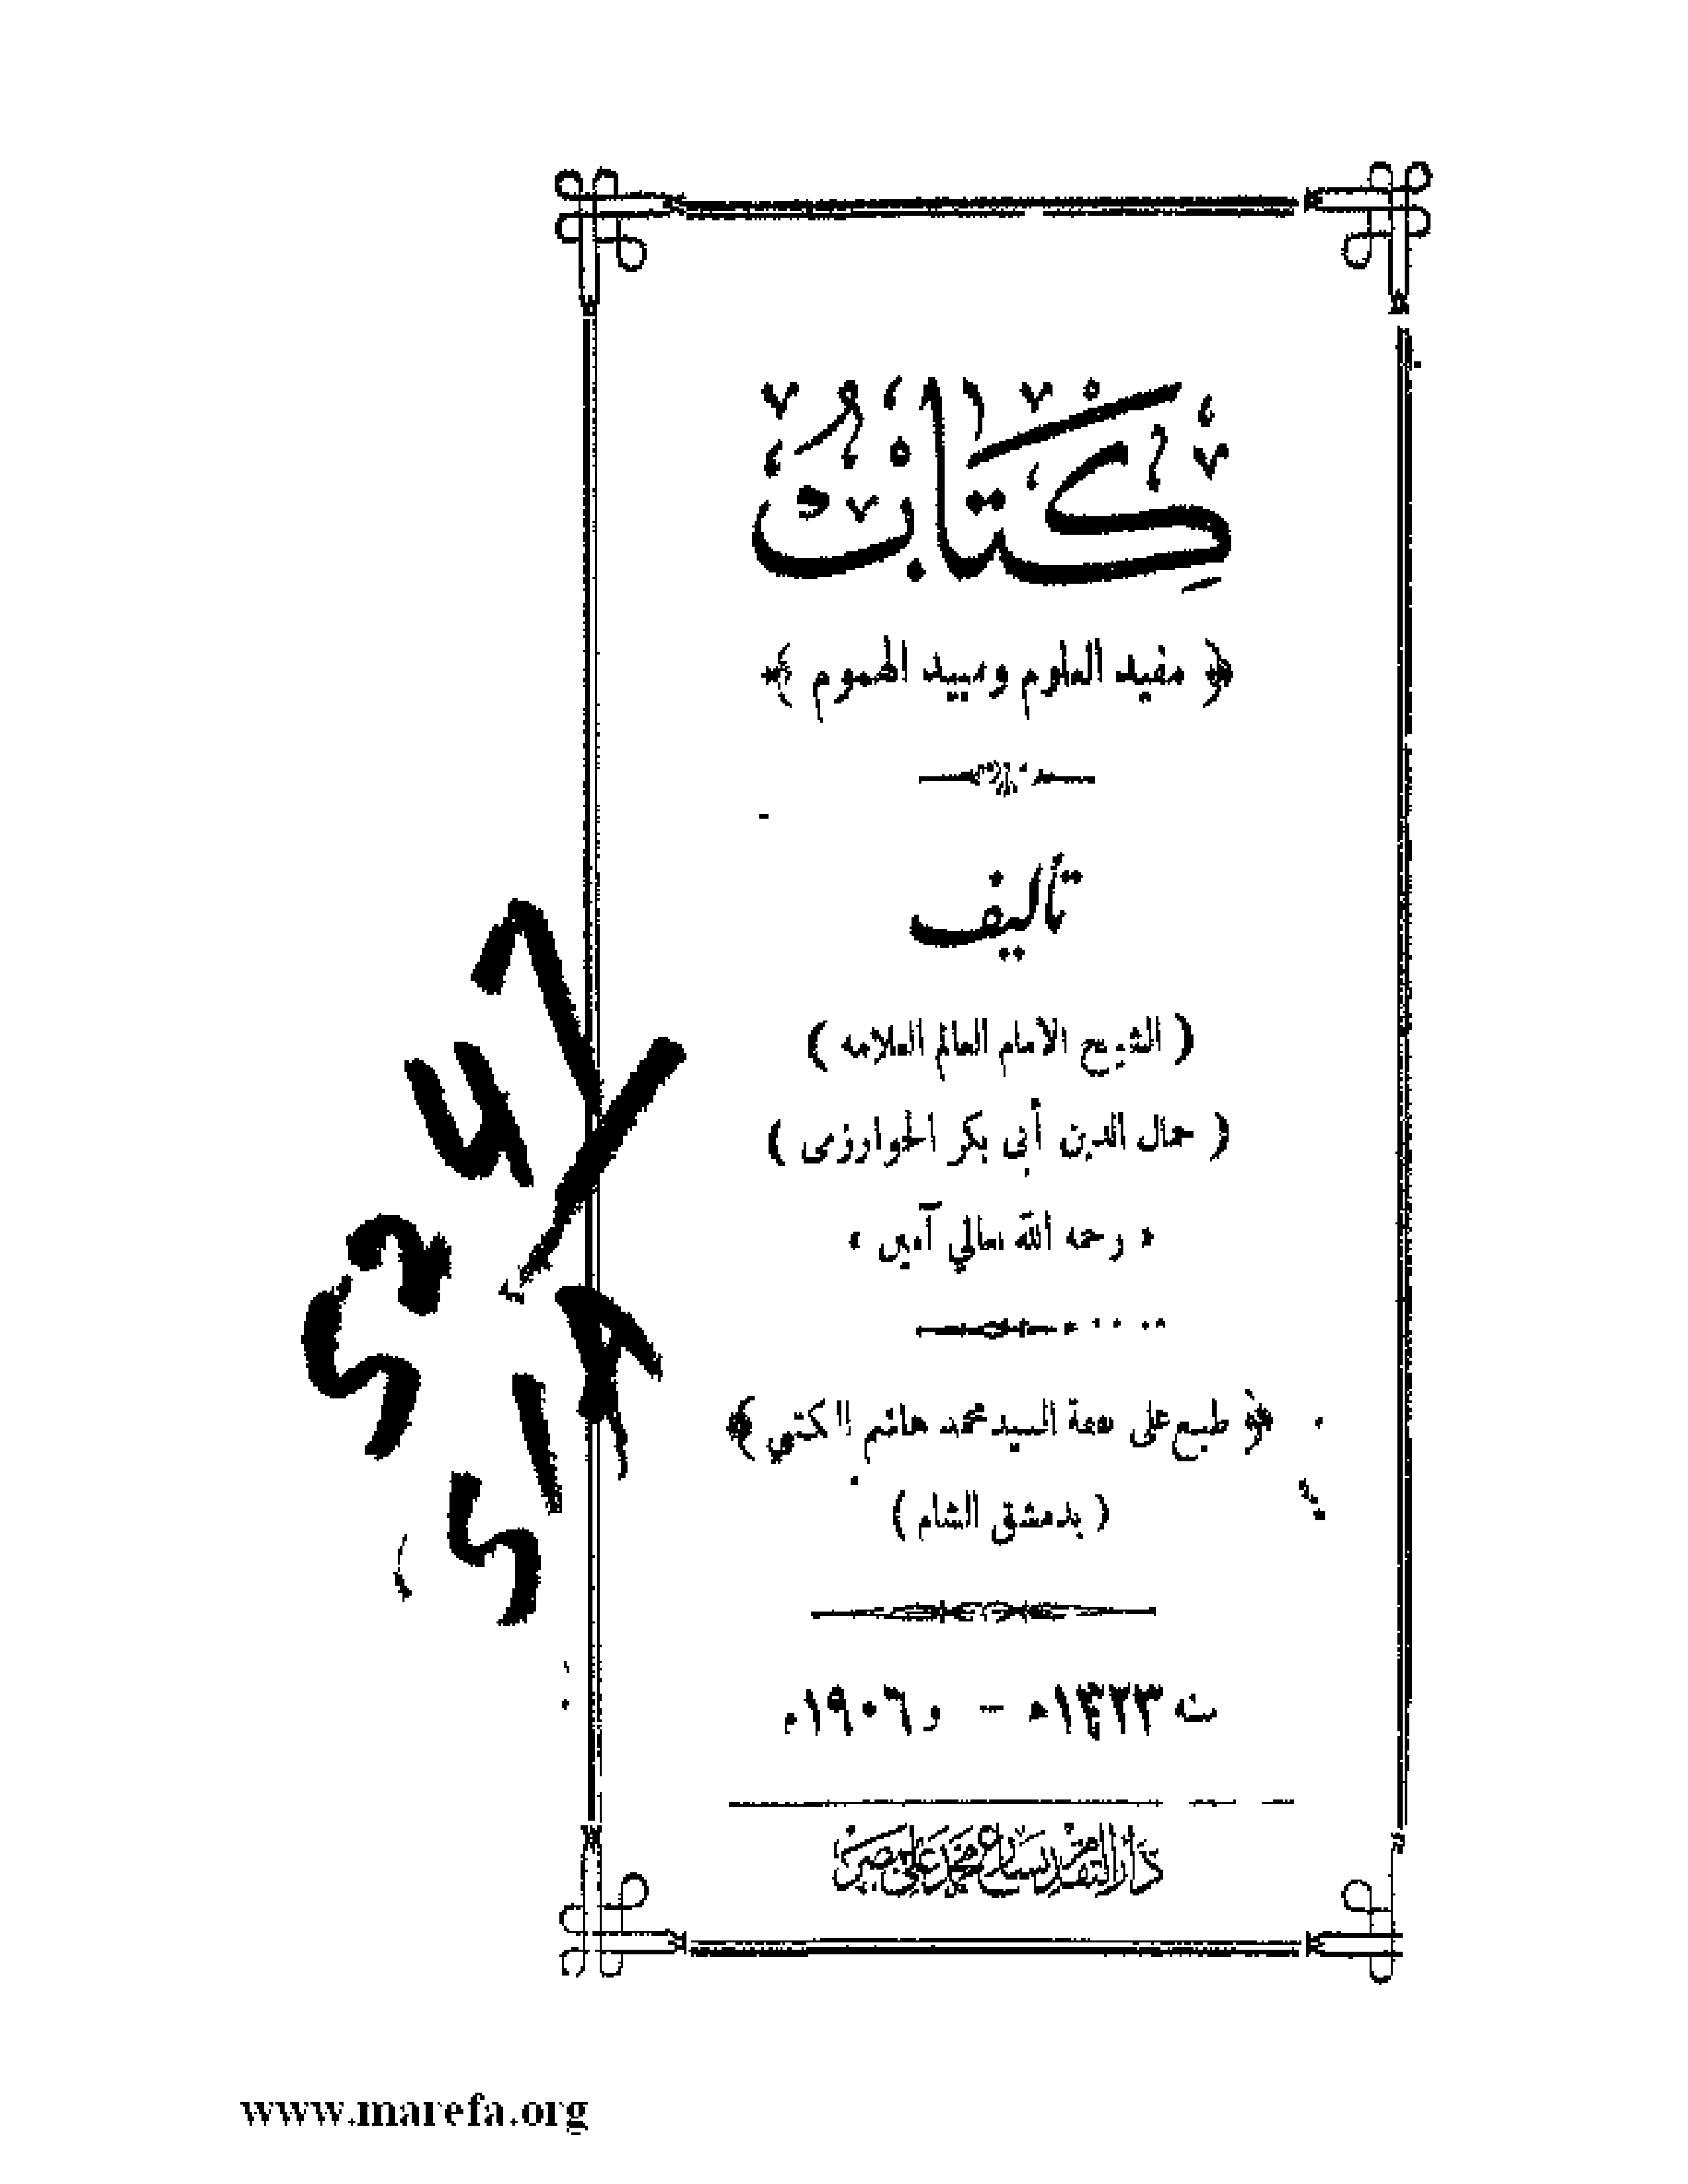 كِتَابٌ
﴿ مفيد العلوم ومبيد الهموم ﴾
تأليف
( الشيخ الامام العالم العلامه )
( جمال الدين أبي بكر الخوارزمى )
« رحمه الله تعالي آمين »
﴿ طبع على نفقة السيد محمد هاشم الكتبي ﴾
( بدمشق الشام )
سنه ١٣٢٣ه - و١٩٠٦م
دار التقدم بشارع محمد على بمصر
www.marefa.org